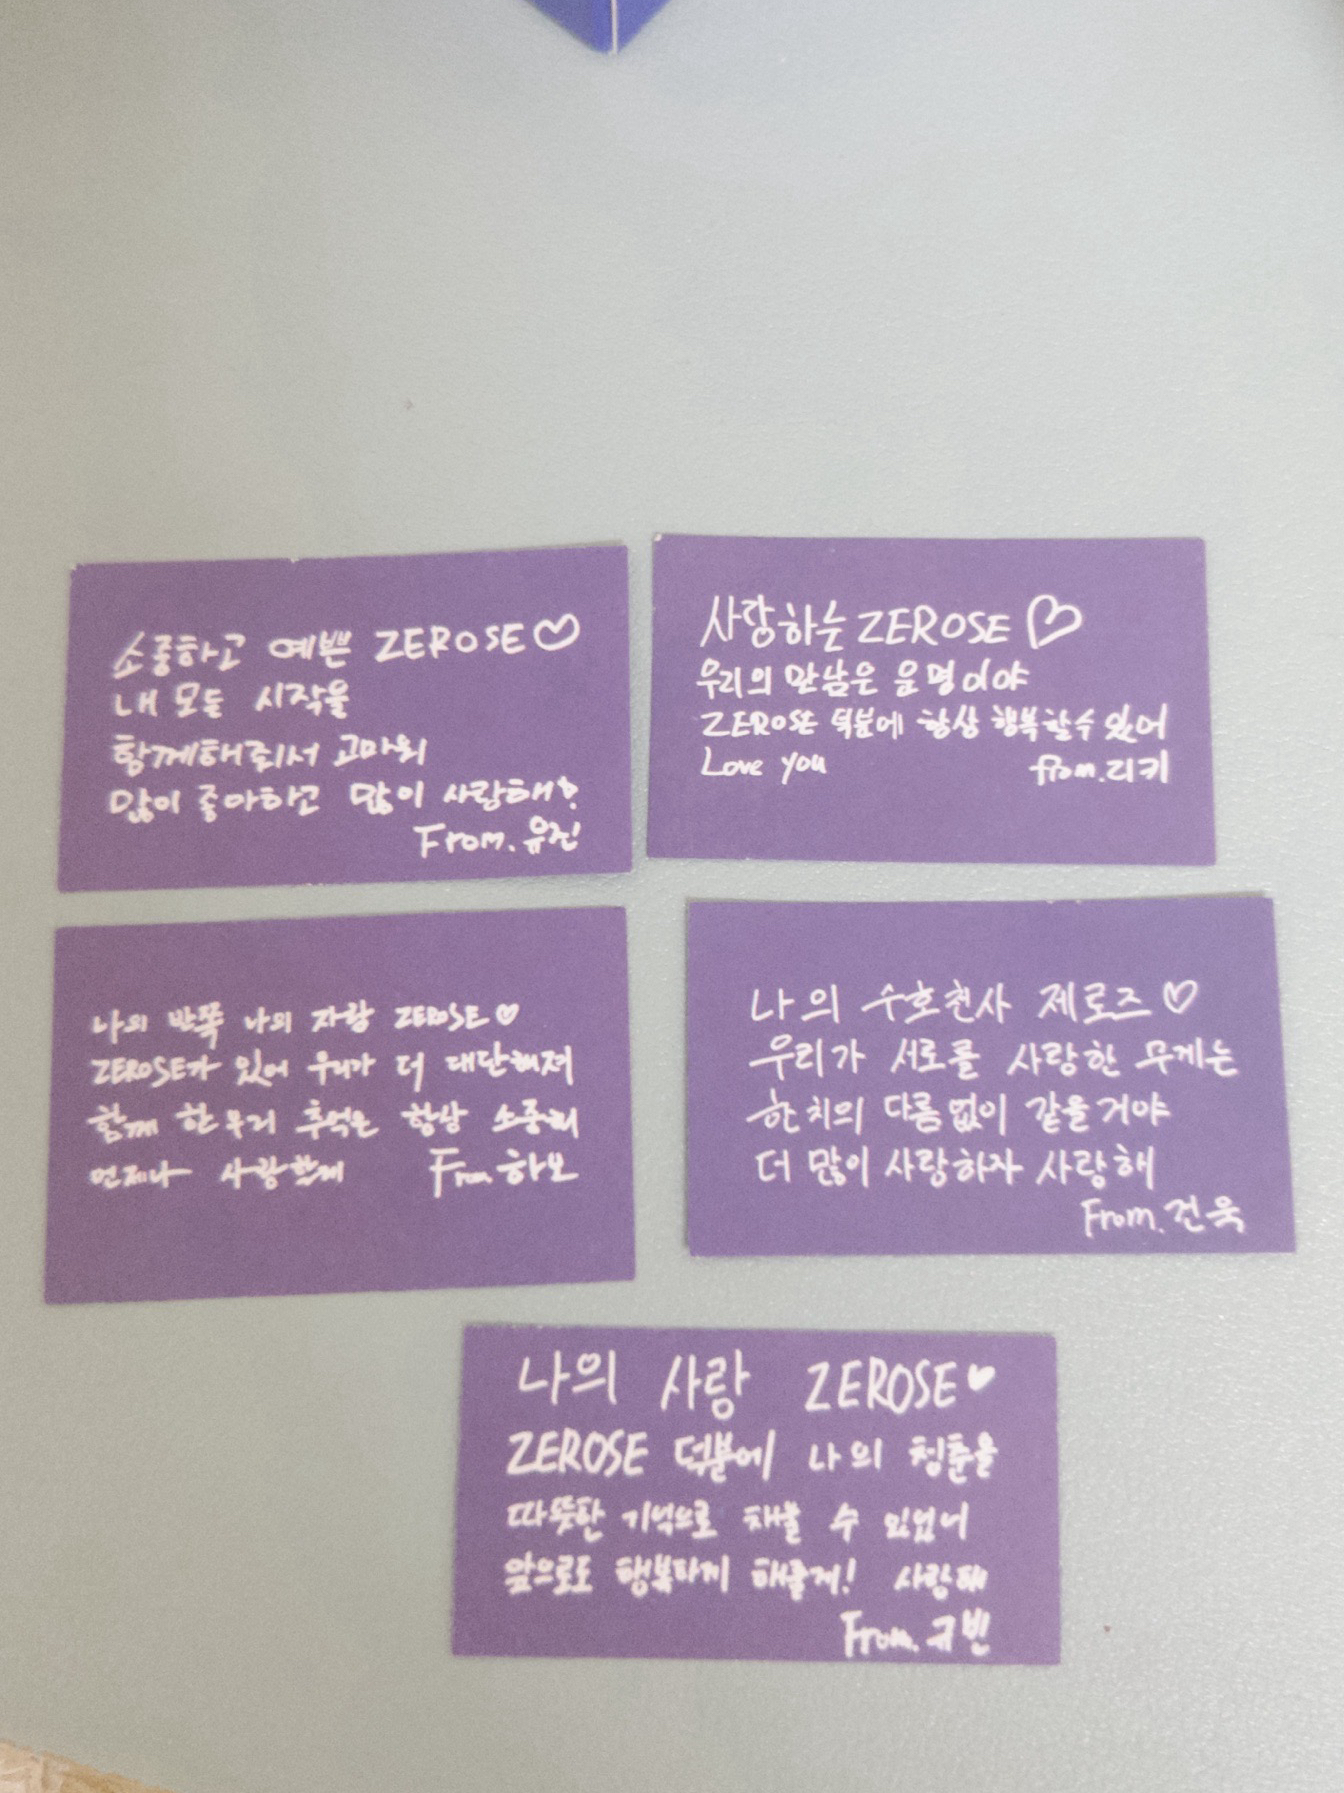 소중하고 예쁜 ZEROSE♡
내 모든 시작을
함께해줘서 고마워
많이 좋아하고 많이 사랑해
From. 유진
사랑하는 ZEROSE ♡
우리의 만남은 운명이야
ZEROSE 덕분에 항상 행복할 수 있어
Love you from. 리키
나의 반쪽 나의 자랑 ZEROSE ♡
ZEROSE가 있어 우리가 더 대단해져
함께 한 우리 추억은 항상 소중해
언제나 사랑할게 From. 하오
나의 수호천사 제로즈 ♡
우리가 서로를 사랑한 무게는
한 치의 다름없이 같을거야
더 많이 사랑하자 사랑해
From. 건욱
나의 사랑 ZEROSE ♥
ZEROSE 덕분에 나의 청춘을
따뜻한 기억으로 채울 수 있었어
앞으로도 행복하게 해줄게! 사랑해
From. 규빈